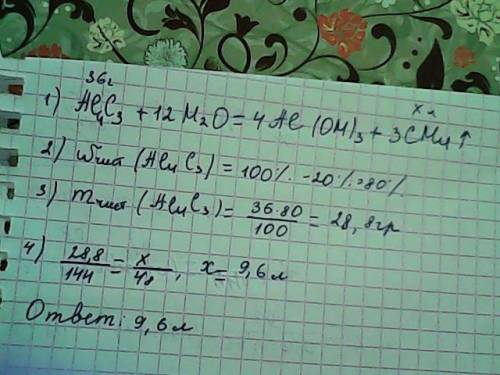 36г
x л
1) Al₄C₃ + 12 H₂O = 4 Al(OH)₃ + 3CH₄↑
2) ωчист (Al₄C₃) = 100% - 20% = 80%
3) mчист (Al₄C₃) = 36·80/100 = 28,8гр
4) 28,8/144 = x/48, x = 9,6 л
Ответ: 9,6 л